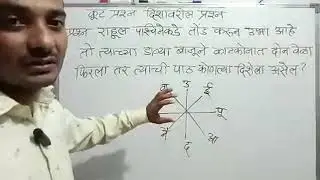 कूट प्रश्न दिशावरील प्रश्न
प्रश्न राहूल पश्चिमेकडे तोंड करून उभा आहे
तो त्याच्या डाव्या बाजूने काटकोनात दोन वेळा
फिरला तर त्याची पाठ कोणत्या दिशेला असेल?
वा उ ई
पू
नै द आ